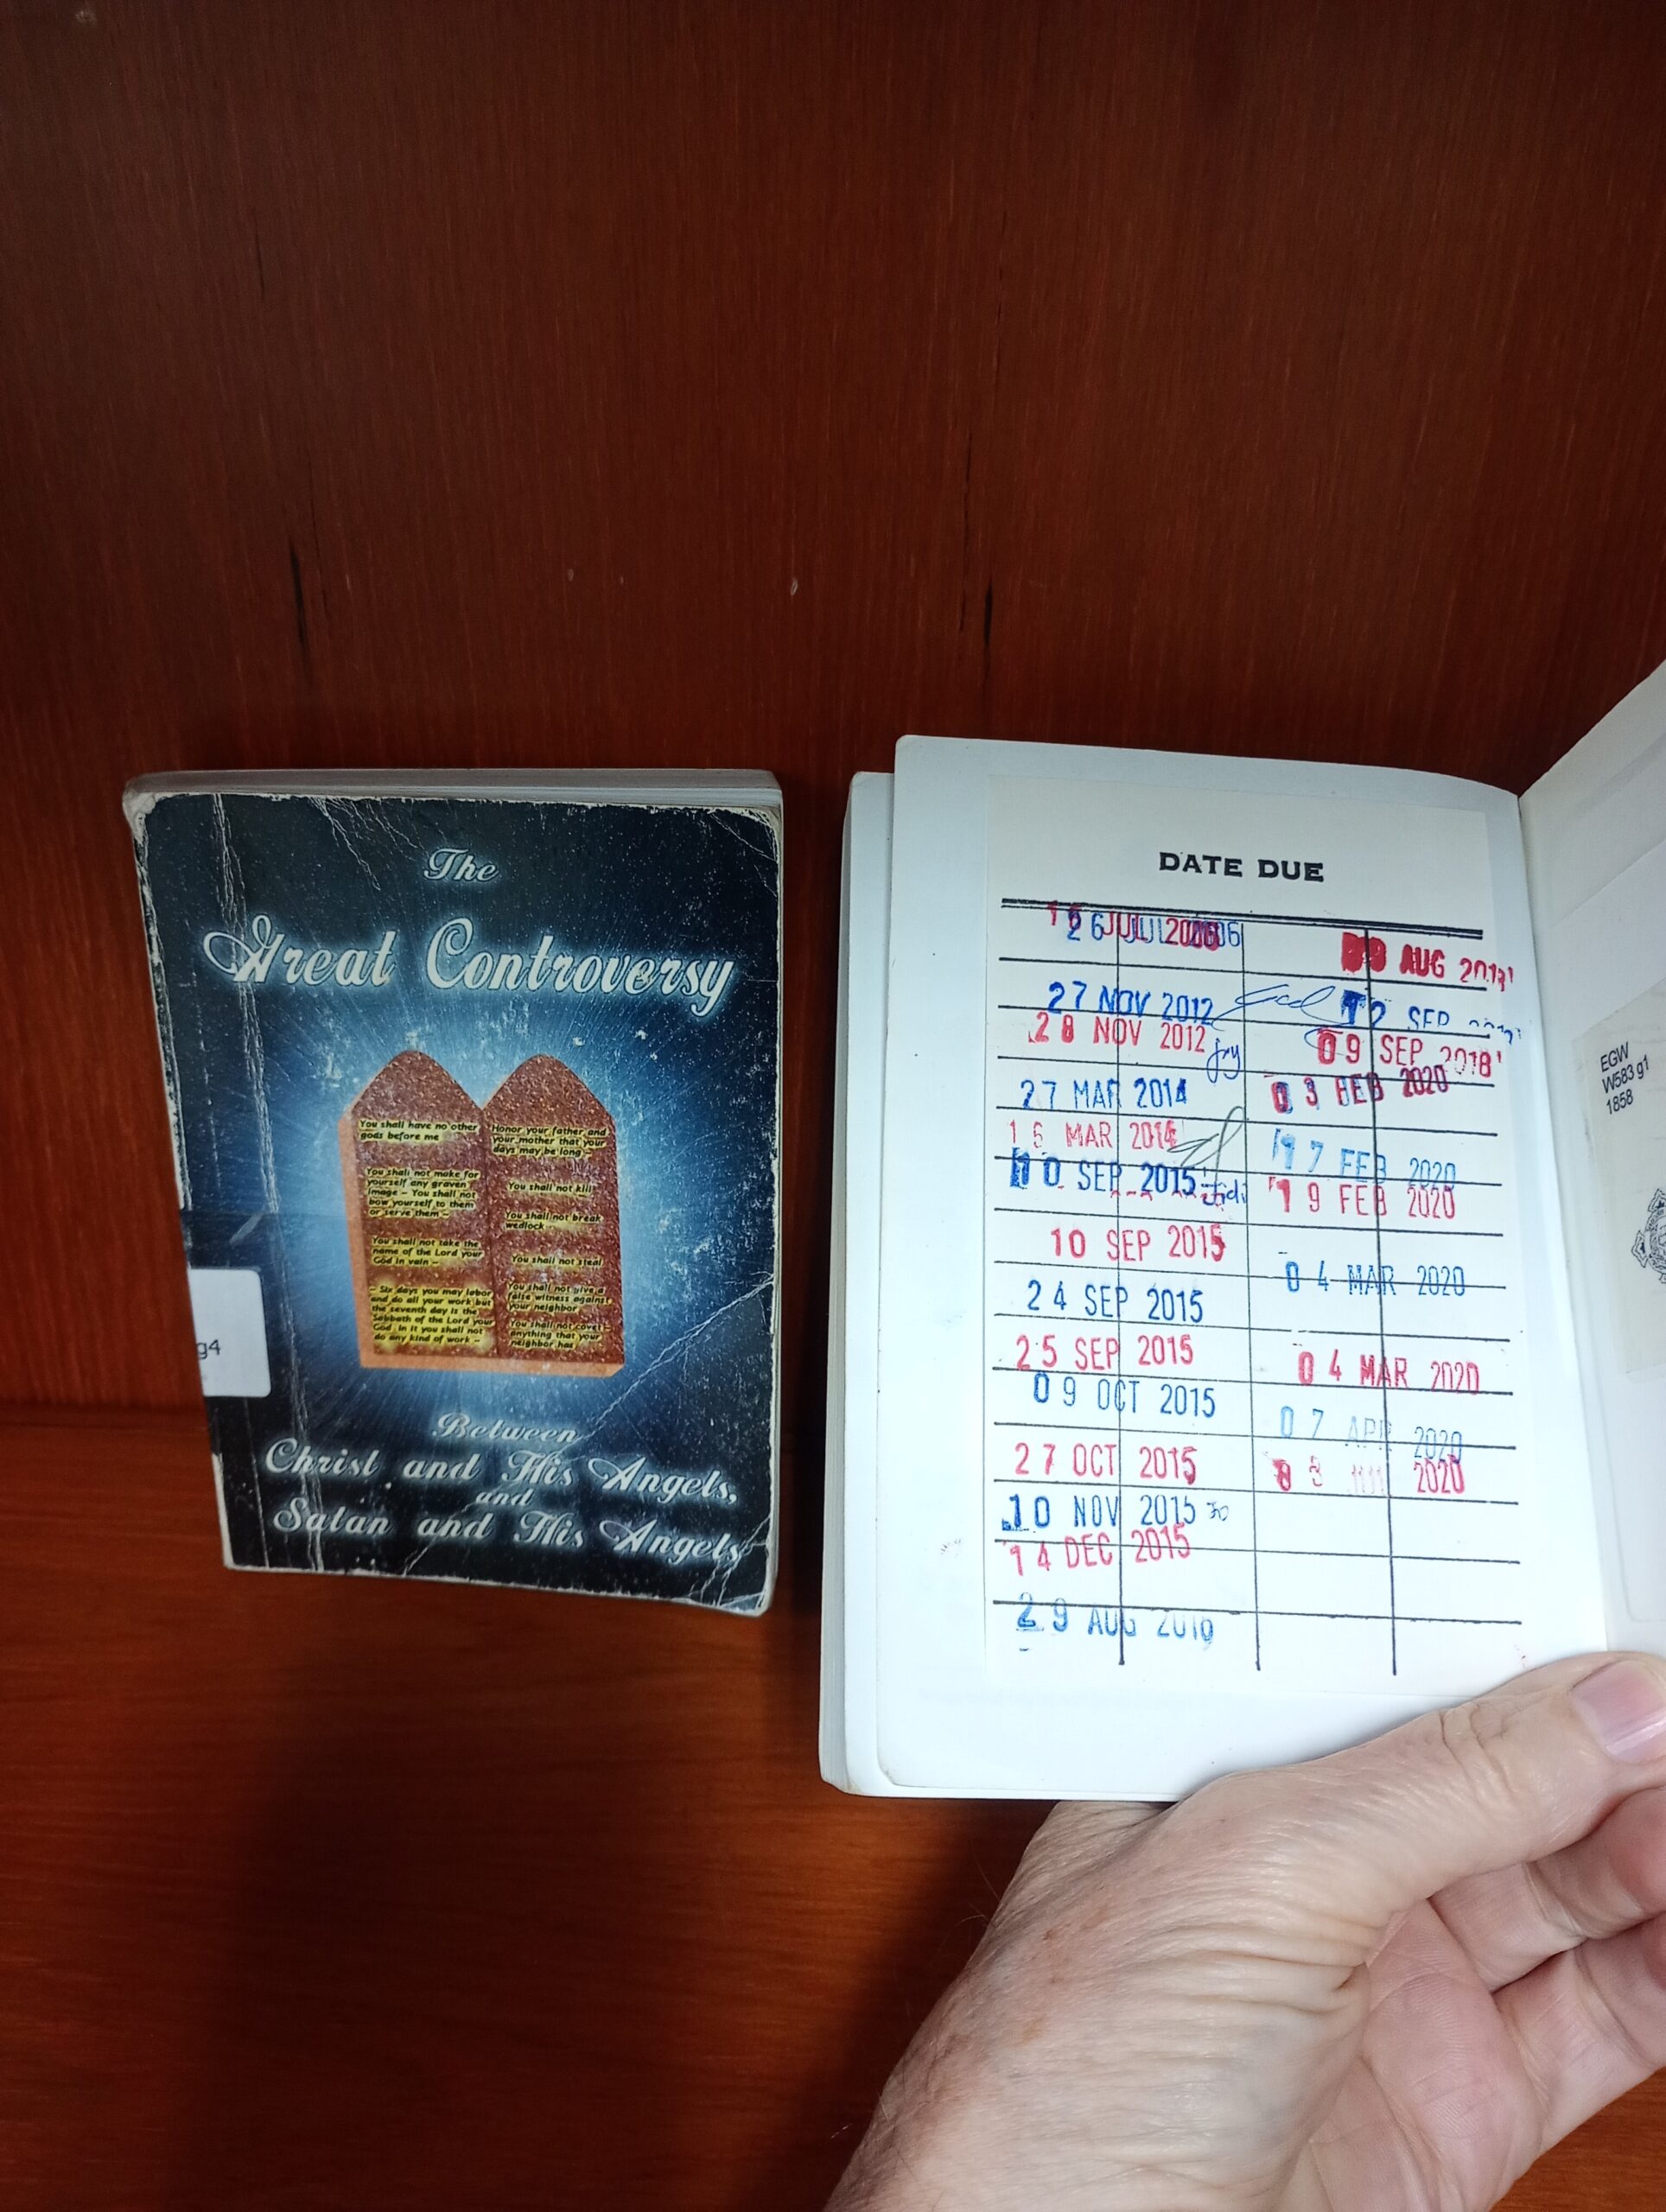 The
Great Controversy
You shall have no other
gods before me
You shall not make for
yourself any graven
image – You shall not
bow yourself to them
or serve them –
You shall not take the
name of the Lord your
God in vain –
– Six days you may labor
and do all your work but
the seventh day is the
Sabbath of the Lord your
God in it you shall not
do any kind of work –
Honor your father and
your mother that your
days may be long –
You shall not kill
You shall not break
wedlock
You shall not steal
You shall not give a
false witness against
your neighbor
You shall not covet
anything that your
neighbor has
Between
Christ and His Angels,
and
Satan and His Angels
g4
DATE DUE
26 JUL 2006
27 NOV 2012
28 NOV 2012
27 MAR 2014
MAR 2014
10 SEP 2015
10 SEP 2015
24 SEP 2015
25 SEP 2015
09 OCT 2015
27 OCT 2015
10 NOV 2015
14 DEC 2015
29 AUG
AUG
12 SEP
09 SEP 2018
03 FEB 2020
17 FEB 2020
19 FEB 2020
04 MAR 2020
04 MAR 2020
07 APR 2020
2020
EGW
W583 g1
1858